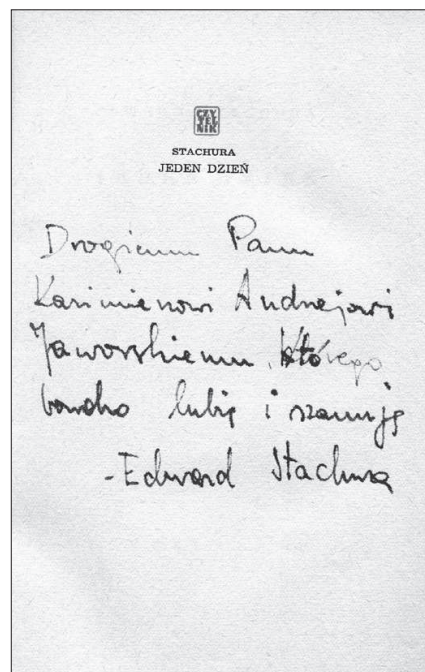 CZY
TEL
NIK
STACHURA
JEDEN DZIEŃ
Drogiemu Panu
Kazimierzowi Andrzejowi
Jaworskiemu, którego
bardzo lubię i szanuję
-Edward Stachura